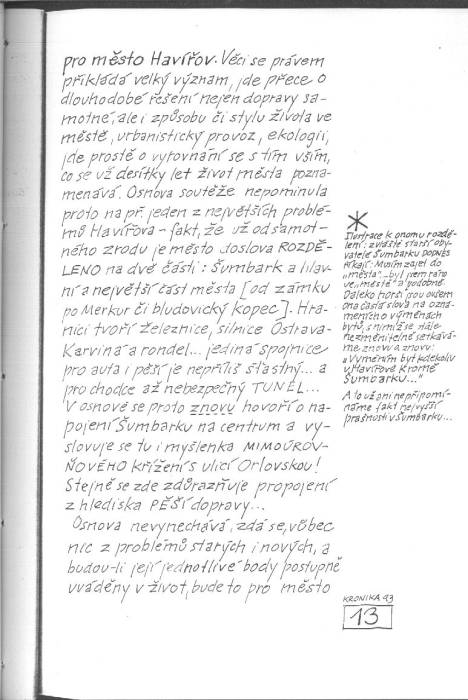 pro město Havířov. Věci se právem
přikládá velký význam, jde přece o
dlouhodobé řešení nejen dopravy sa-
motné, ale i způsobu či stylu života ve
městě, urbanistický provoz, ekologii,
jde prostě o vyrovnání se s tím vším,
co se už desítky let život města pozna-
menává. Osnova soutěže nepominula
proto na př. jeden z největších problé-
mů Havířova – fakt, že už od samot-
ného zrodu je město doslova ROZDĚ-
LENO na dvě části: Šumbark a hlav-
ní a největší část města [od zámku
po Merkur či bludovický kopec]. Hra-
nici tvoří železnice, silnice Ostrava-
Karviná a rondel... jediná spojnice
pro auta i pěší je nepříliš šťastný... a
pro chodce až nebezpečný TUNEL...
V osnově se proto znovu hovoří o na-
pojení Šumbarku na centrum a vy-
slovuje se tu i myšlenka MIMOÚROV-
ŇOVÉHO křížení s ulicí Orlovskou!
Stejně se zde zdůrazňuje propojení
z hlediska PĚŠÍ dopravy...
Osnova nevynechává, zdá se, vůbec
nic z problémů starých i nových, a
budou-li její jednotlivé body postupně
uváděny v život, bude to pro město
Ilustrace k onomu rozdě-
lení: zvláště starší oby-
vatelé Šumbarku DODNES
říkají: Musím zajet do
„města"... byl jsem ráno
ve „městě" a podobně.
Daleko horší jsou ovšem
ona častá slova na ozná-
meních o výměnách
bytů, s nimiž se stále
nezměnitelně setkává-
me znovu a znovu:
„Vyměním byt kdekoliv
v Havířově kromě
Šumbarku..."
A to už ani nepřipomí-
náme fakt nejvyšší
prašnosti v Šumbarku...
KRONIKA 93
13